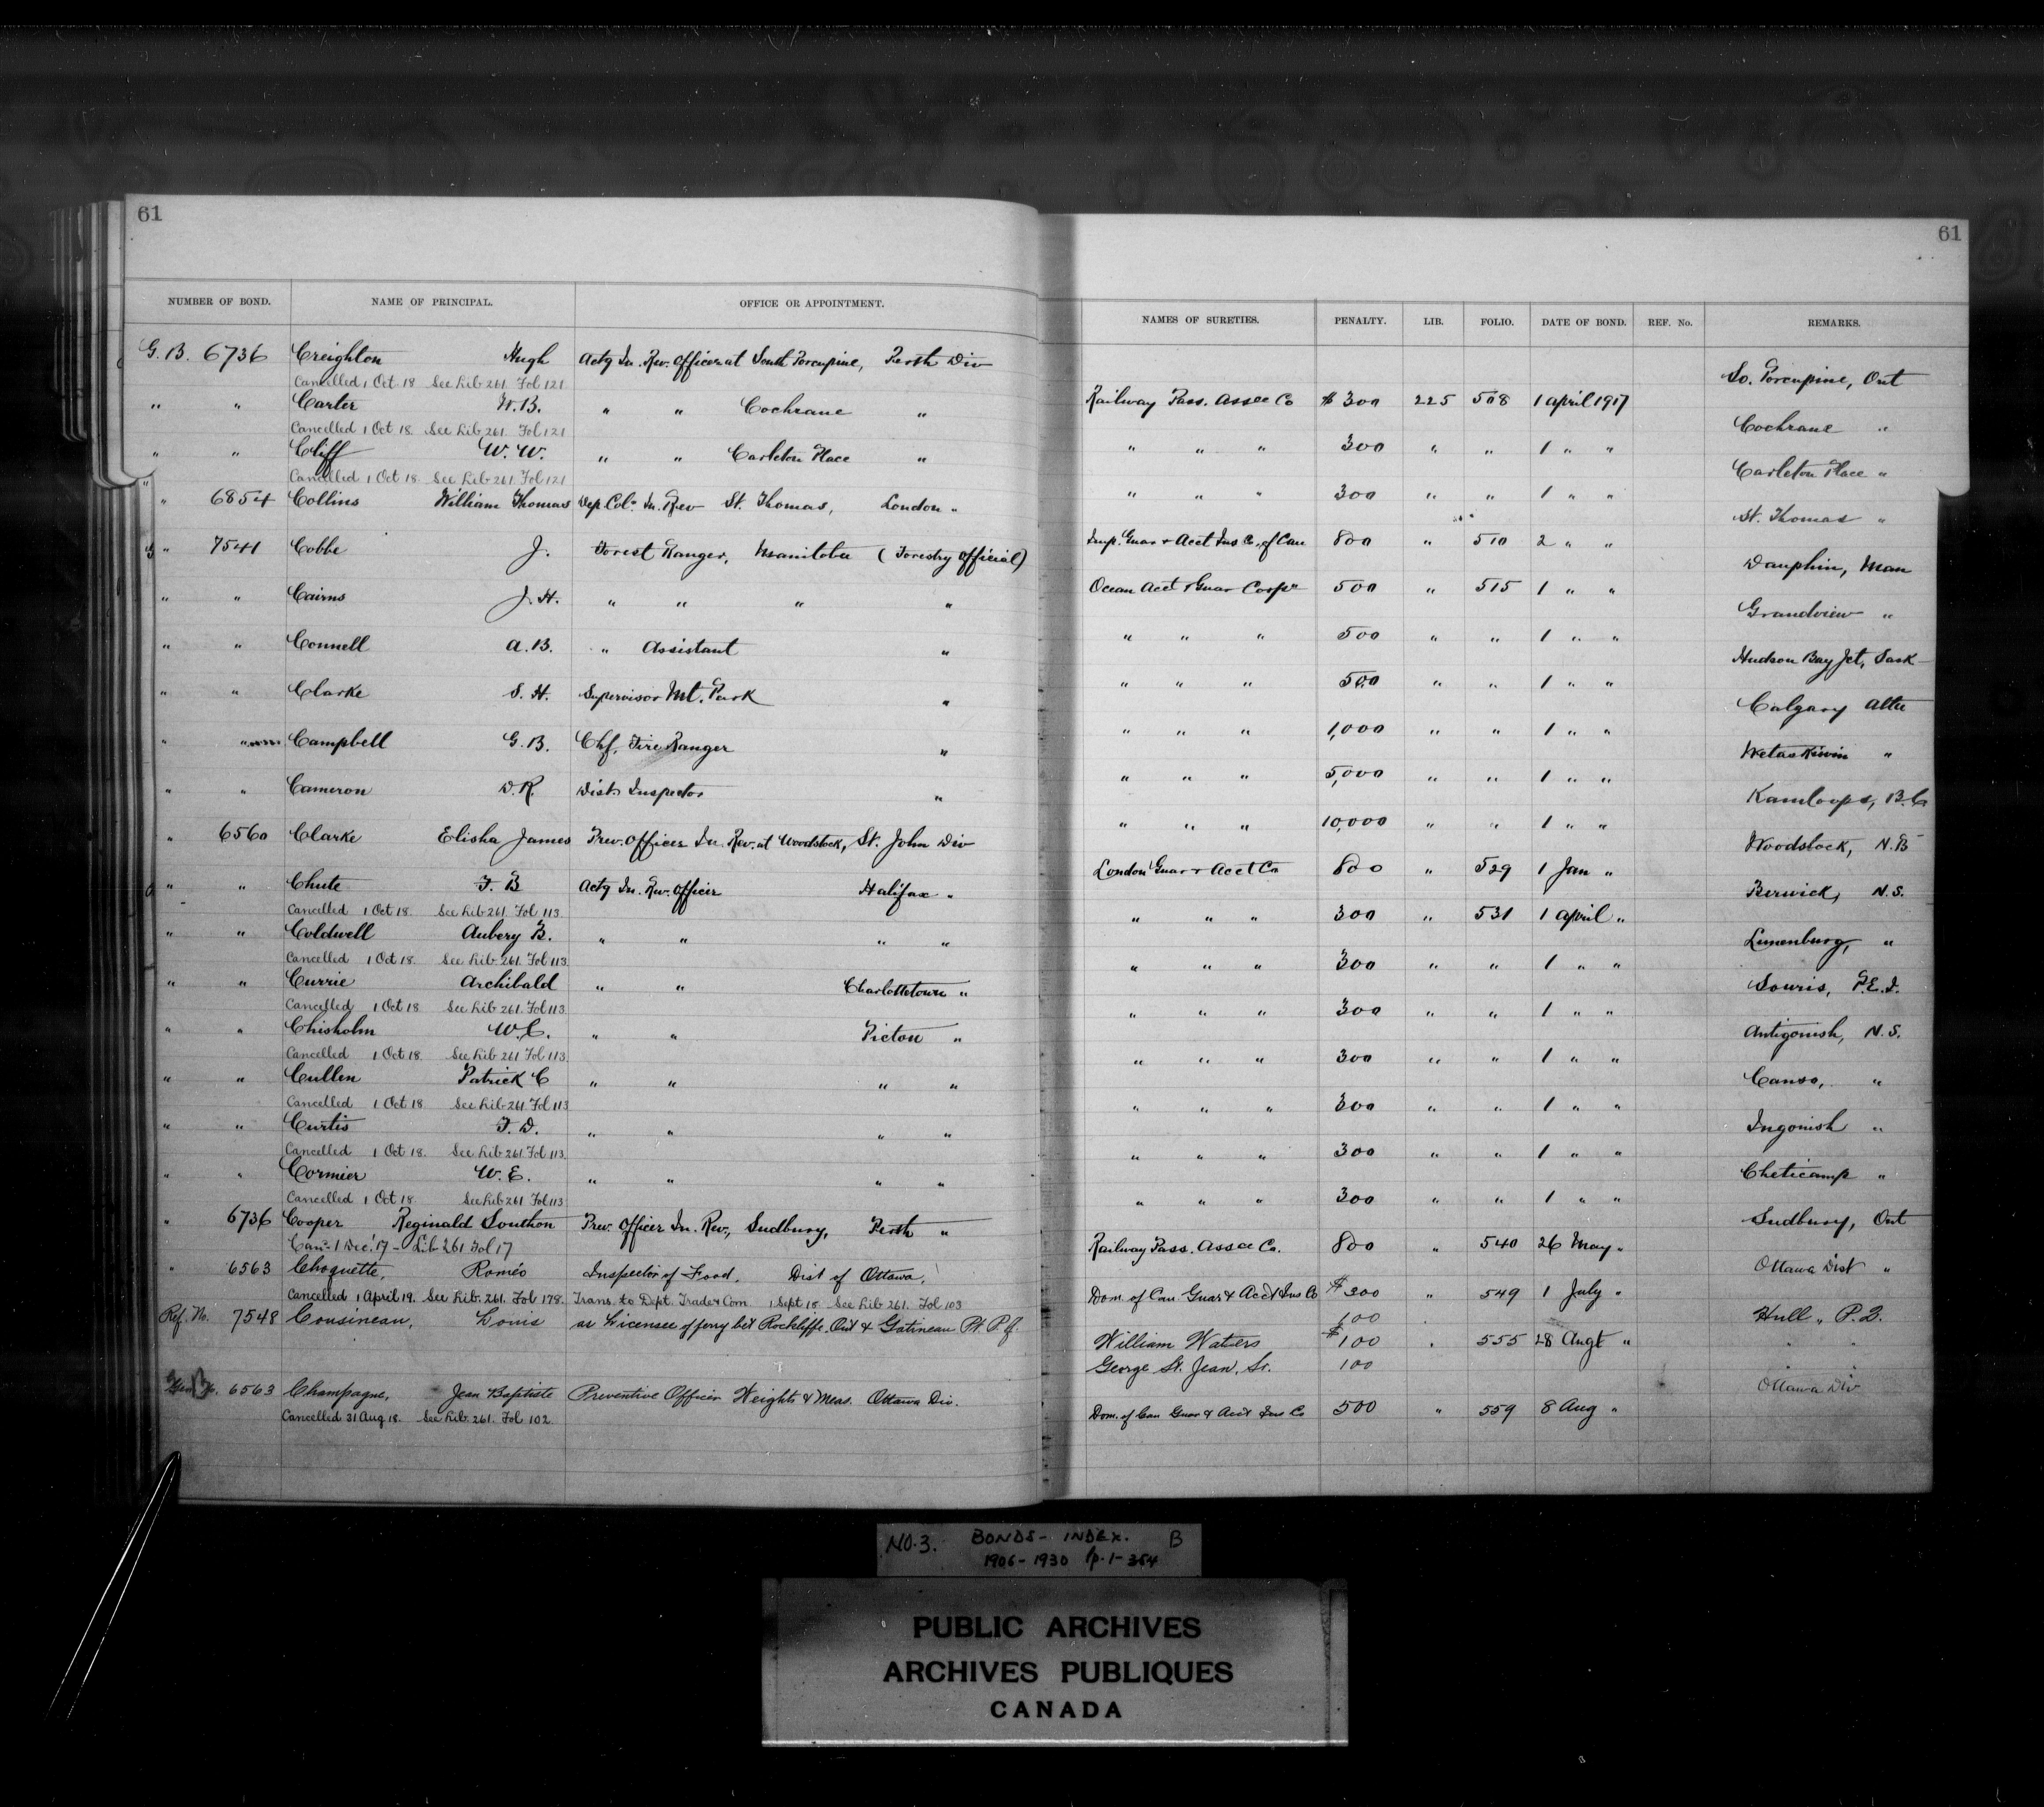 61
NUMBER OF BOND. NAME OF PRINCIPAL. OFFICE OR APPOINTMENT.
G. B. 6736 Creighton Hugh Actg In. Rev. Officer at South Porcupine, Perth Div
Cancelled 1 Oct 18 See Lib 261 Fol 121
" " Carter W. B. " " Cochrane "
Cancelled 1 Oct 18. See Lib 261. Fol 121
" " Cliff W. W. " " Carleton Place "
Cancelled 1 Oct 18. See Lib 261 Fol 121
" 6854 Collins William Thomas Dep. Colr. In. Rev St. Thomas, London "
" 7541 Cobbe J. Forest Ranger, Manitoba (Forestry Official)
" " Cairns J. H. " " " "
" " Connell A. B. " Assistant "
" " Clarke S. H. Supervisor Mt. Park "
" " Campbell G. B. Chf. Fire Ranger "
" " Cameron D. R. Dist. Inspector "
" 6560 Clarke Elisha James Prev. Officer In. Rev. at Woodstock, St. John Div
" " Chute F. B Actg In. Rev. Officer Halifax "
Cancelled 1 Oct 18. See Lib 261 Fol 113.
" " Coldwell Aubery B. " " " "
Cancelled 1 Oct 18. See Lib 261. Fol 113.
" " Currie Archibald " " Charlottetown "
Cancelled 1 Oct 18 See Lib 261. Fol 113.
" " Chisholm W. C. " " Pictou "
Cancelled 1 Oct 18. See Lib 261 Fol 113.
" " Cullen Patrick C " " " "
Cancelled 1 Oct 18. See Lib 261 Fol 113
" " Curtis F. D. " " " "
Cancelled 1 Oct 18. See Lib 261 Fol 113.
" " Cormier W. E. " " " "
Cancelled 1 Oct 18. See Lib 261 Fol 113
" 6736 Cooper Reginald Southon Prev. Officer In. Rev., Sudbury, Perth "
Can. 1 Dec. 17 - Lib 261 Fol 17
" 6563 Choquette, Roméo Inspector of Food, Dist of Ottawa,
Cancelled 1 April 19. See Lib. 261. Fol 178. Trans. to Dept. Trade & Com 1 Sept 18 See Lib 261. Fol 103
Ref. No. 7548 Cousineau, Louis as Licensee of ferry bet Rockliffe Ont & Gatineau Pt. P.Q.
6563 Champagne, Jean Baptiste Preventive Officer Weights & Meas. Ottawa Div.
Cancelled 31 Aug 18. See Lib. 261. Fol 102.
61
NAMES OF SURETIES. PENALTY. LIB. FOLIO. DATE OF BOND. REF. No. REMARKS.
So. Porcupine, Ont
Railway Pass. Assce Co $ 300 225 508 1 April 1917
Cochrane "
" " " 300 " " 1 " "
Carleton Place "
" " " 300 " " 1 " "
St. Thomas "
Imp. Guar & Acct Ins Co, of Can 800 " 510 2 " "
Dauphin, Man
Ocean Acct & Guar Corpn 500 " 515 1 " "
Grandview "
" " " 500 " " 1 " "
Hudson Bay Jct, Sask
" " " 500 " " 1 " "
Calgary Alta
" " " 1,000 " " 1 " "
Wetaskiwin "
" " " 5,000 " " 1 " "
Kamloops, B.C
" " " 10,000 " " 1 " "
Woodstock, N. B
London Guar & Acct Co 800 " 529 1 Jan "
Berwick, N. S.
" " " 300 " 531 1 April "
Lunenburg, "
" " " 300 " " 1 " "
Souris, P.E.I.
" " " 300 " " 1 " "
Antigonish, N. S.
" " " 300 " " 1 " "
Canso, "
" " " 300 " " 1 " "
Ingonish "
" " " 300 " " 1 " "
Cheticamp "
" " " 300 " " 1 " "
Sudbury, Ont
Railway Pass. Assce Co. 800 " 540 26 May "
Ottawa Dist "
Dom. of Can Guar & Acct Ins Co $ 300 " 549 1 July "
100 Hull " P. Q.
William Waters $ 100 " 555 28 Augt "
George St. Jean, Sr. 100
Ottawa Div
Dom. of Can Guar & Acct Ins Co 500 " 559 8 Aug "
NO. 3. BONDS - INDEX. B
1906 - 1930 p. 1 - 354
PUBLIC ARCHIVES
ARCHIVES PUBLIQUES
CANADA